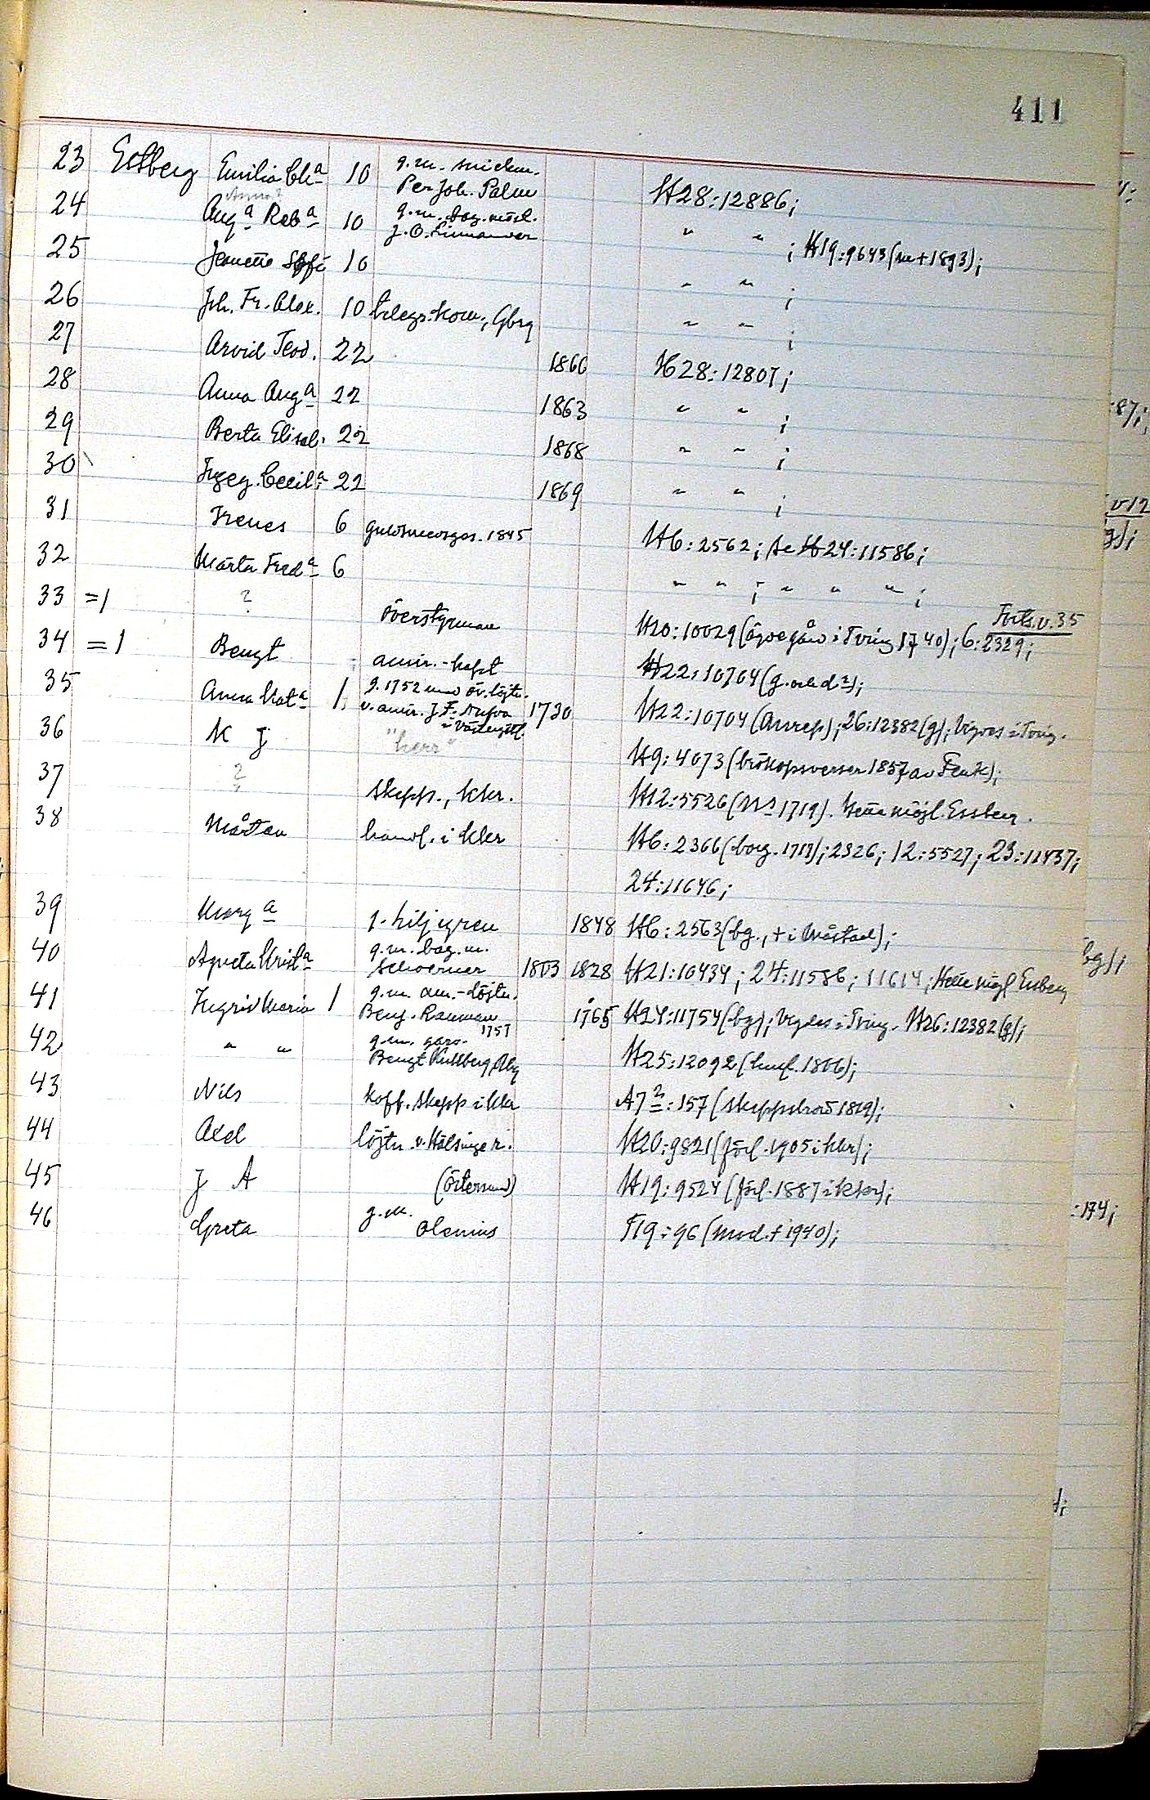 411
23 Estberg Emilia Ch:a 10 g.m. snickm. Per Joh. Palm H28:12886;
24 Anna? Aug:a Reb:a 10 g.m. bag.mäst. J.O. Linnander " " ; H19:9643 (m + 1893);
25 Jeanette Soffi 10 " " ;
26 Joh. Fr. Alex. 10 telegr.kom., Gbrg " " ;
27 Arvid Teod. 22 1866 H28:12807;
28 Anna Aug:a 22 1863 " " ;
29 Berta Elisab. 22 1868 " " ;
30 Ingeg. Cecil:a 22 1869 " " ;
31 Irenes 6 guldsmedsges. 1845 H6:2562; Ae H24:11586;
32 Märta Fred:a 6 " " ; " " " ;
33 =1 ? överstyrman H20:10029 (övergår i Tving 1740); 6:2329; Forts. v. 35
34 =1 Bengt amir.-kapt H22:10704 (g. och d?);
35 Anna Kat:a 1. g. 1752 med öv.löjtn. v. amir. J.F. i Västergötl. 1730 H22:10704 (Anrep); 26:12382 (g); Vigdes i Tving.
36 K J "herr" H9:4073 (bröllopsverser 1857 av
37 ? skepp., Kkr. H12:5526 (1719). Hette möjl. Essberg.
38 Mårten handl. i Kkr H6:2366 (borg. 1717); 2326; 12:5527; 23:11437;
24:11646;
39 Marg:a g. Liljegren 1848 H6:2563 (bg., + i
40 Agneta Krist:a g.m. bag.m. Schoerner 1803 1828 H21:10434; 24:11586; 11614; Hette mögl Enberg
41 Ingrid Maria 1 g.m. am.-löjtn. Beng. Rauman 1765 H24:11754 (bg); Vigdes i Tving. H26:12382 (g);
42 " " g.m. garv. 1757 Bengt Kullberg, H25:12092 1806);
43 Nils koff. skepp i Kkr A7:157 (skeppsbrott 1819);
44 Axel löjtn v. Hälsinge r. H20:9821 (förl. 1905 i Kkr);
45 J A (Östersund) H19:9524 (förl. 1887 i Kkr);
46 Greta g.m. Olenius F19:96 (mod. + 1940);